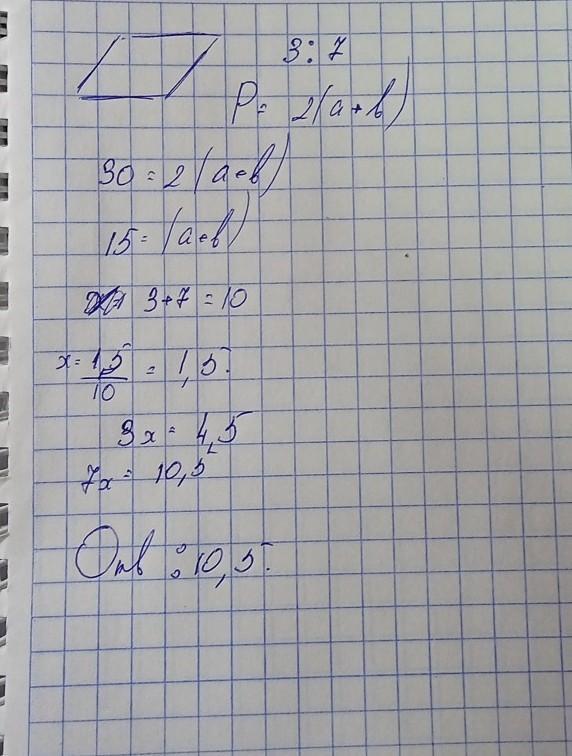 3:7
P= 2(a+b)
30=2(a+b)
15=(a+b)
3+7=10
x= 15/10 = 1,5.
3x= 4,5
7x= 10,5
Отв: 10,5.